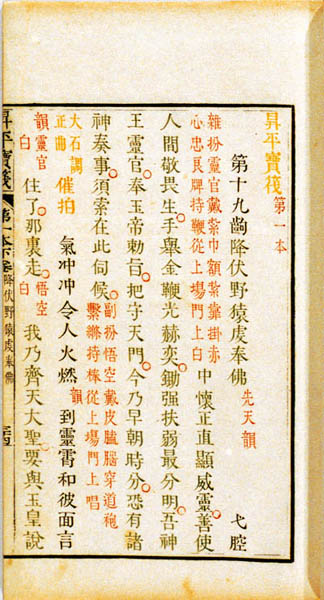 昇平寶筏 第一本
第十九齣降伏野猿虔奉佛 先天韻 弋腔
雜扮靈官戴紫巾額紫靠掛赤
心忠良牌持鞭從上場門上白
中懷正直顯威靈善使
人間敬畏生手舉金鞭光赫奕鋤強扶弱最分明吾神
王靈官奉玉帝勅旨把守天門今乃早朝時分恐有諸
神奏事須索在此伺候
副扮悟空戴皮臚腦穿道袍
繫縧持棒從上場門上唱
大石調
正曲
催拍 氣冲冲令人火燃韻到靈霄和彼面言
韻靈官
白
住了那裏走
悟空
白
我乃齊天大聖要與玉皇說
昇平寶筏 第一本 降伏野猿虔奉佛